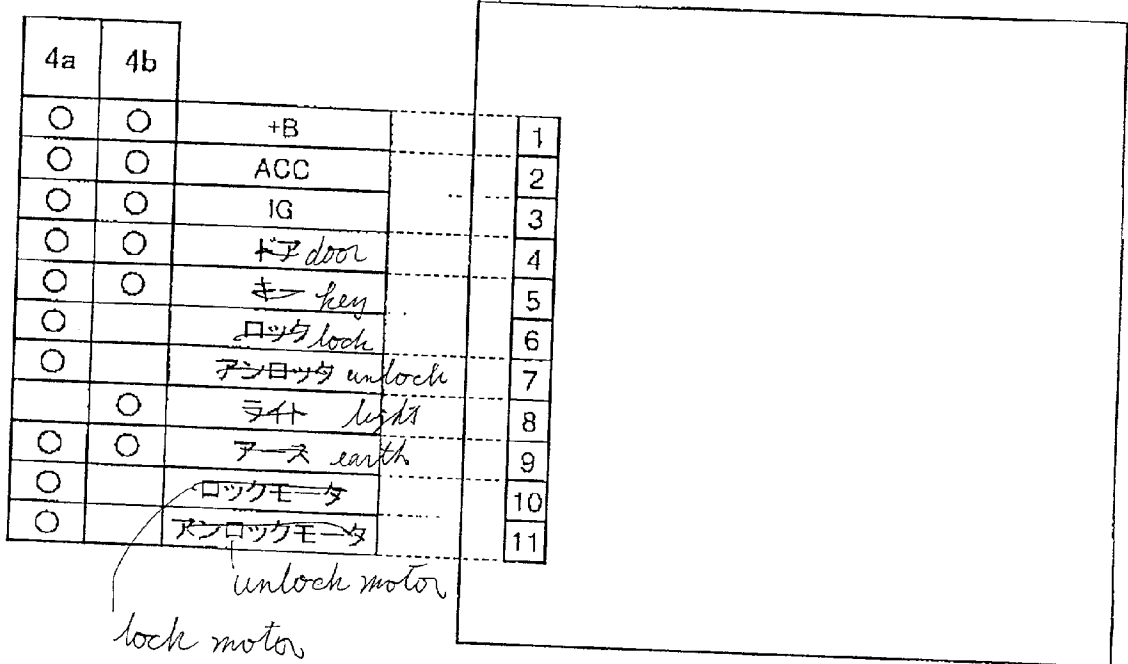 4a 4b
+B 1
ACC 2
IG 3
ドア door 4
キー key 5
ロック lock 6
アンロック unlock 7
ライト light 8
アース earth 9
ロックモータ 10
アンロックモータ 11
unlock motor
lock motor